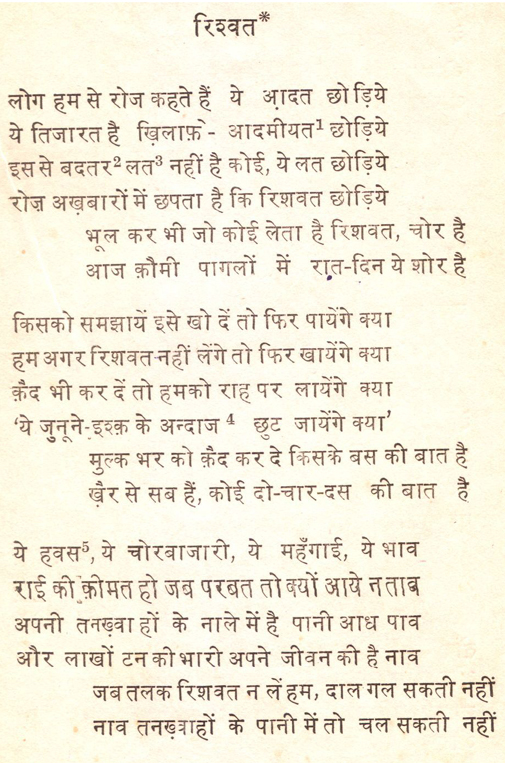 रिश्वत*
लोग हम से रोज कहते हैं ये आ़दत छोड़िये
ये तिजारत है ख़िलाफ़े - आदमीयत¹ छोड़िये
इस से बदतर² लत³ नहीं है कोई, ये लत छोड़िये
रोज़ अख़बारों में छपता है कि रिशवत छोड़िये
भूल कर भी जो कोई लेता है रिशवत, चोर है
आज क़ौमी पागलों में रात-दिन ये शोर है
किसको समझायें इसे खो दें तो फिर पायेंगे क्या
हम अगर रिशवत नहीं लेंगे तो फिर खायेंगे क्या
क़ैद भी कर दें तो हमको राह पर लायेंगे क्या
'ये जुनूने-इश्क़ के अन्दाज ⁴ छुट जायेंगे क्या'
मुल्क भर को क़ैद कर दे किसके बस की बात है
ख़ैर से सब हैं, कोई दो-चार-दस की बात है
ये हवस⁵, ये चोरबाजारी, ये महँगाई, ये भाव
राई की क़ीमत हो जब परबत तो क्यों आये न ताब
अपनी तनख्वाहों के नाले में है पानी आध पाव
और लाखों टन की भारी अपने जीवन की है नाव
जब तलक रिशवत न लें हम, दाल गल सकती नहीं
नाव तनख़्वाहों के पानी में तो चल सकती नहीं